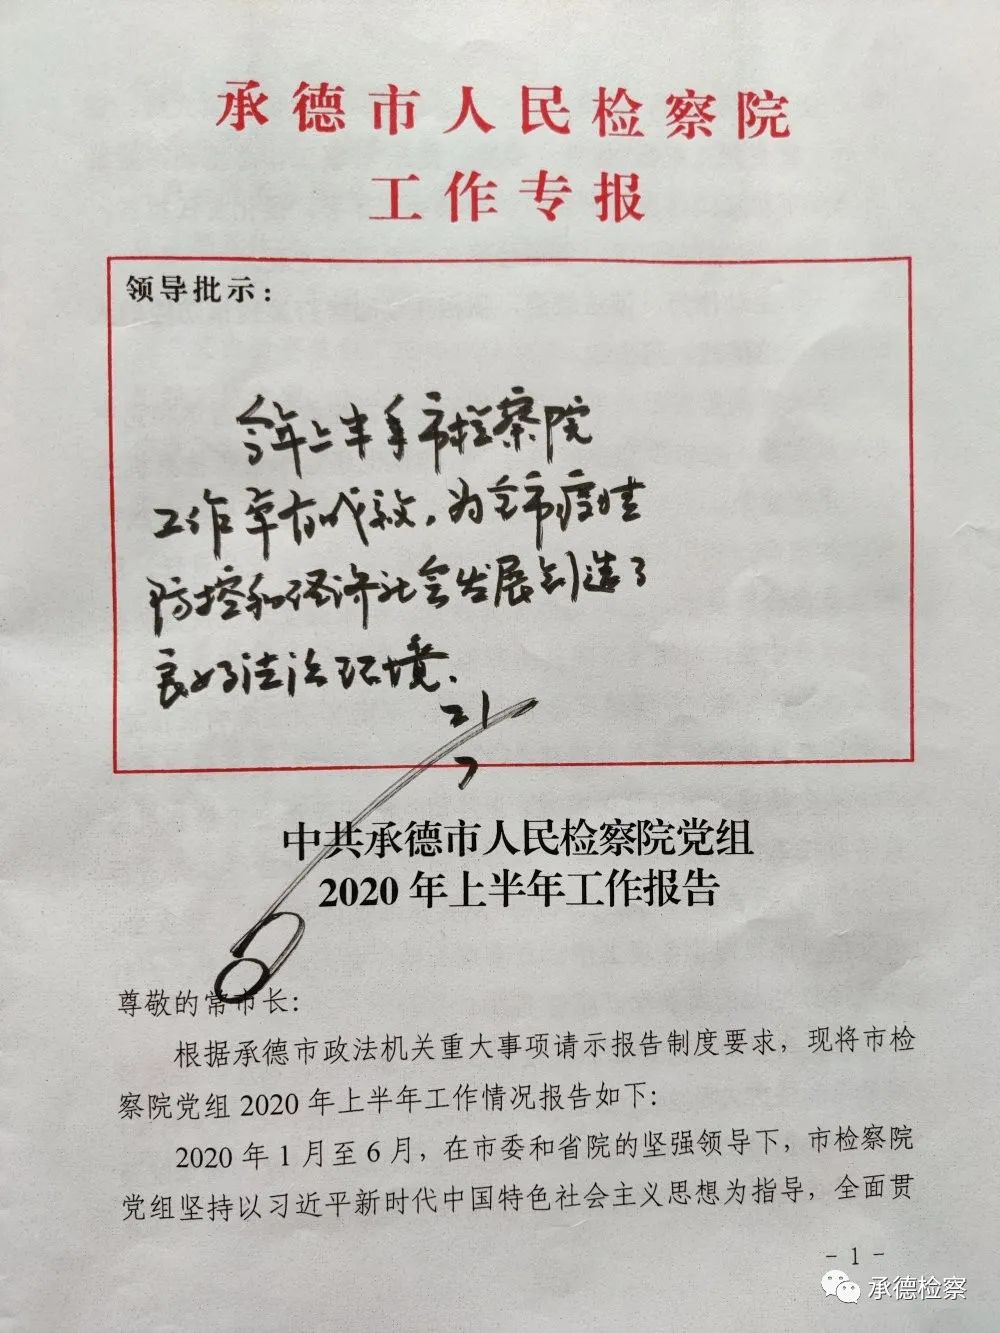 承德市人民检察院
工作专报
领导批示：
今年上半年市检察院
工作卓有成效，为全市疫情
防控和经济社会发展创造了
良好法治环境.
中共承德市人民检察院党组
2020年上半年工作报告
尊敬的常市长：
根据承德市政法机关重大事项请示报告制度要求，现将市检
察院党组2020年上半年工作情况报告如下：
2020年1月至6月，在市委和省院的坚强领导下，市检察院
党组坚持以习近平新时代中国特色社会主义思想为指导，全面贯
- 1 -
承德检察